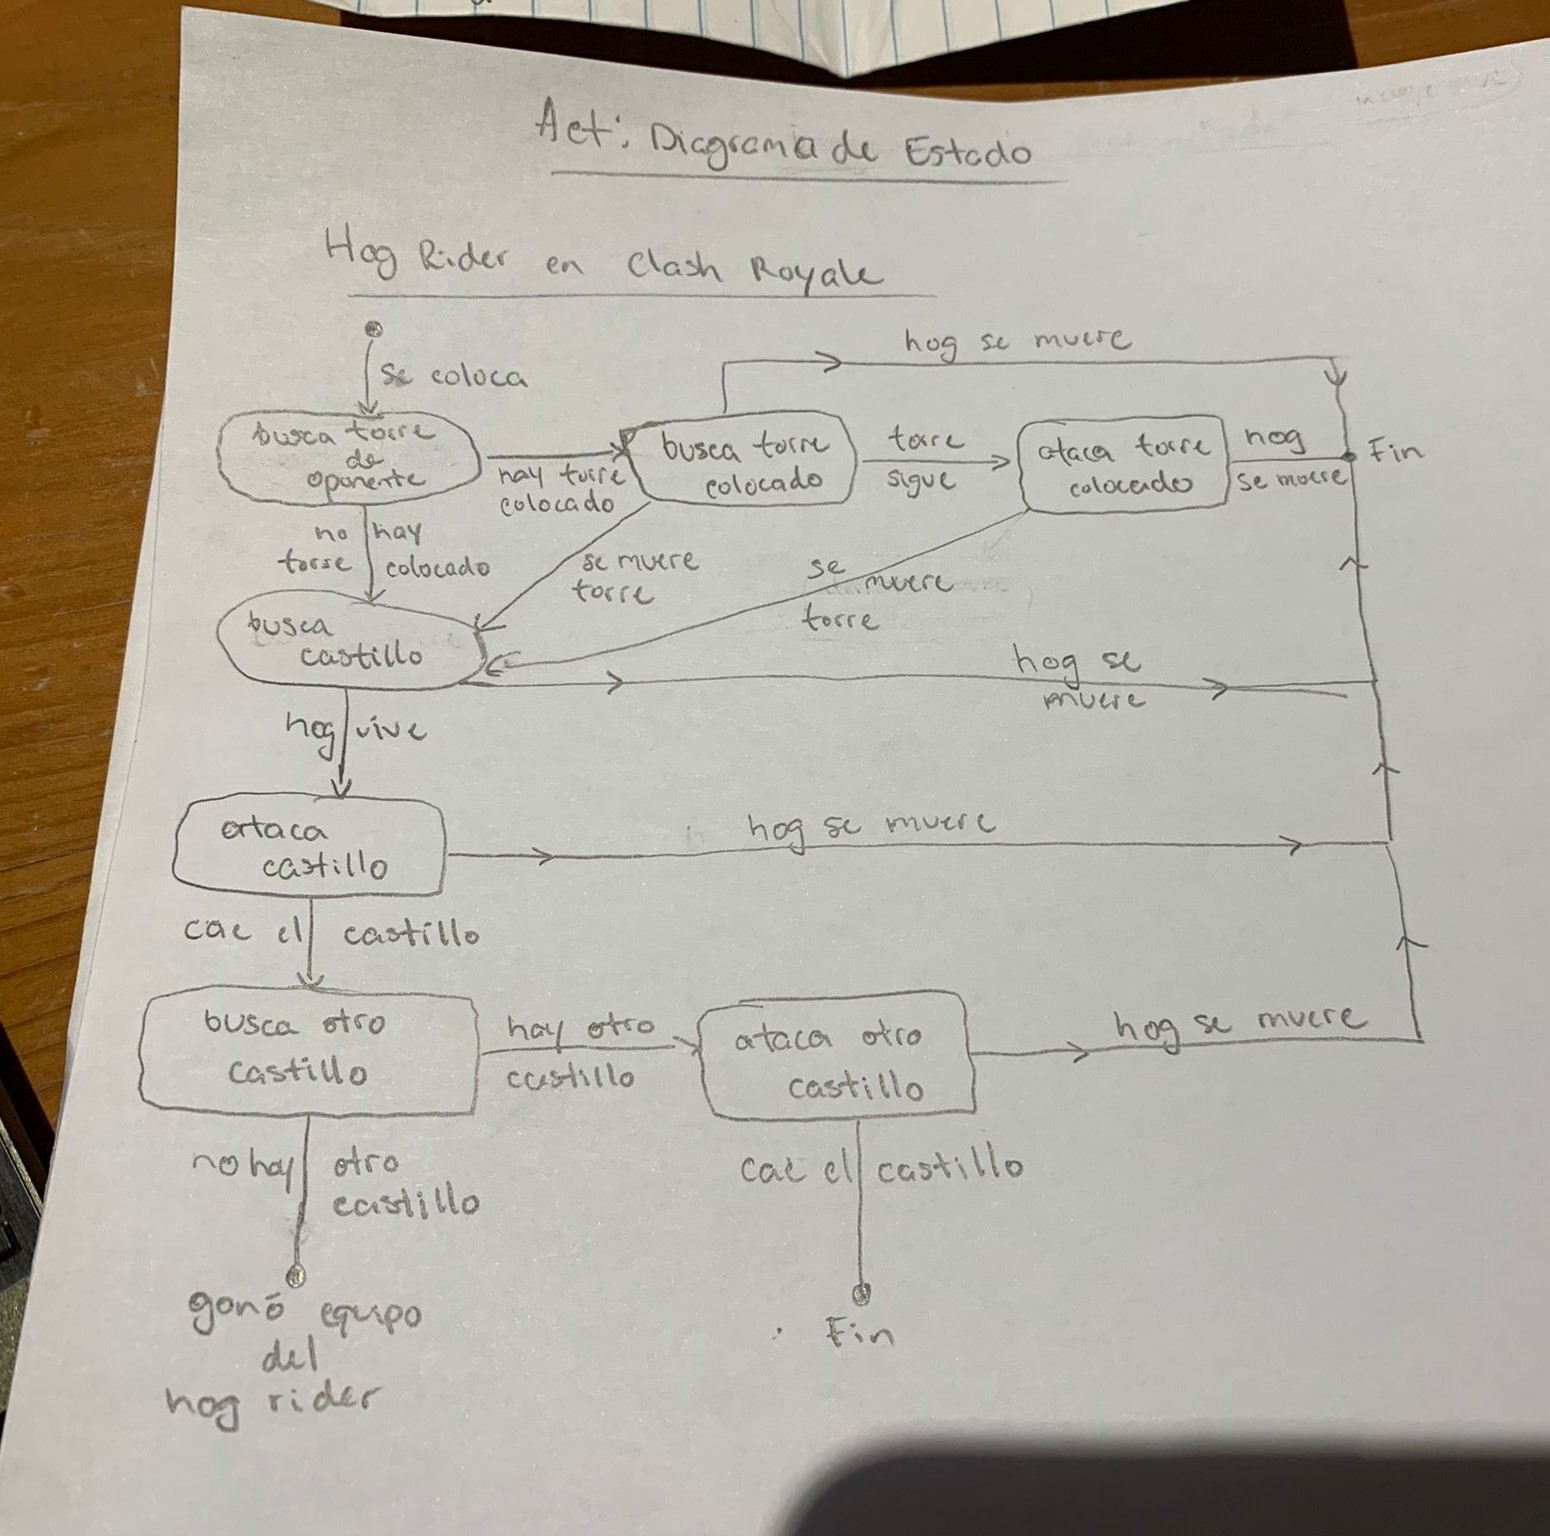 Act: Diagrama de Estado
Hog Rider en Clash Royale
hog se muere
se coloca
busca torre
de
oponente
hay torre
colocado
busca torre
colocado
torre
sigue
ataca torre
colocado
hog
se muere
Fin
no hay
torse colocado
se muere
torre
se muere
torre
busca
castillo
hog se
muere
hog vive
ataca
castillo
hog se muere
cae el castillo
busca otro
castillo
hay otro
castillo
ataca otro
castillo
hog se muere
no hay otro
castillo
cae el castillo
ganó equipo
del
hog rider
Fin